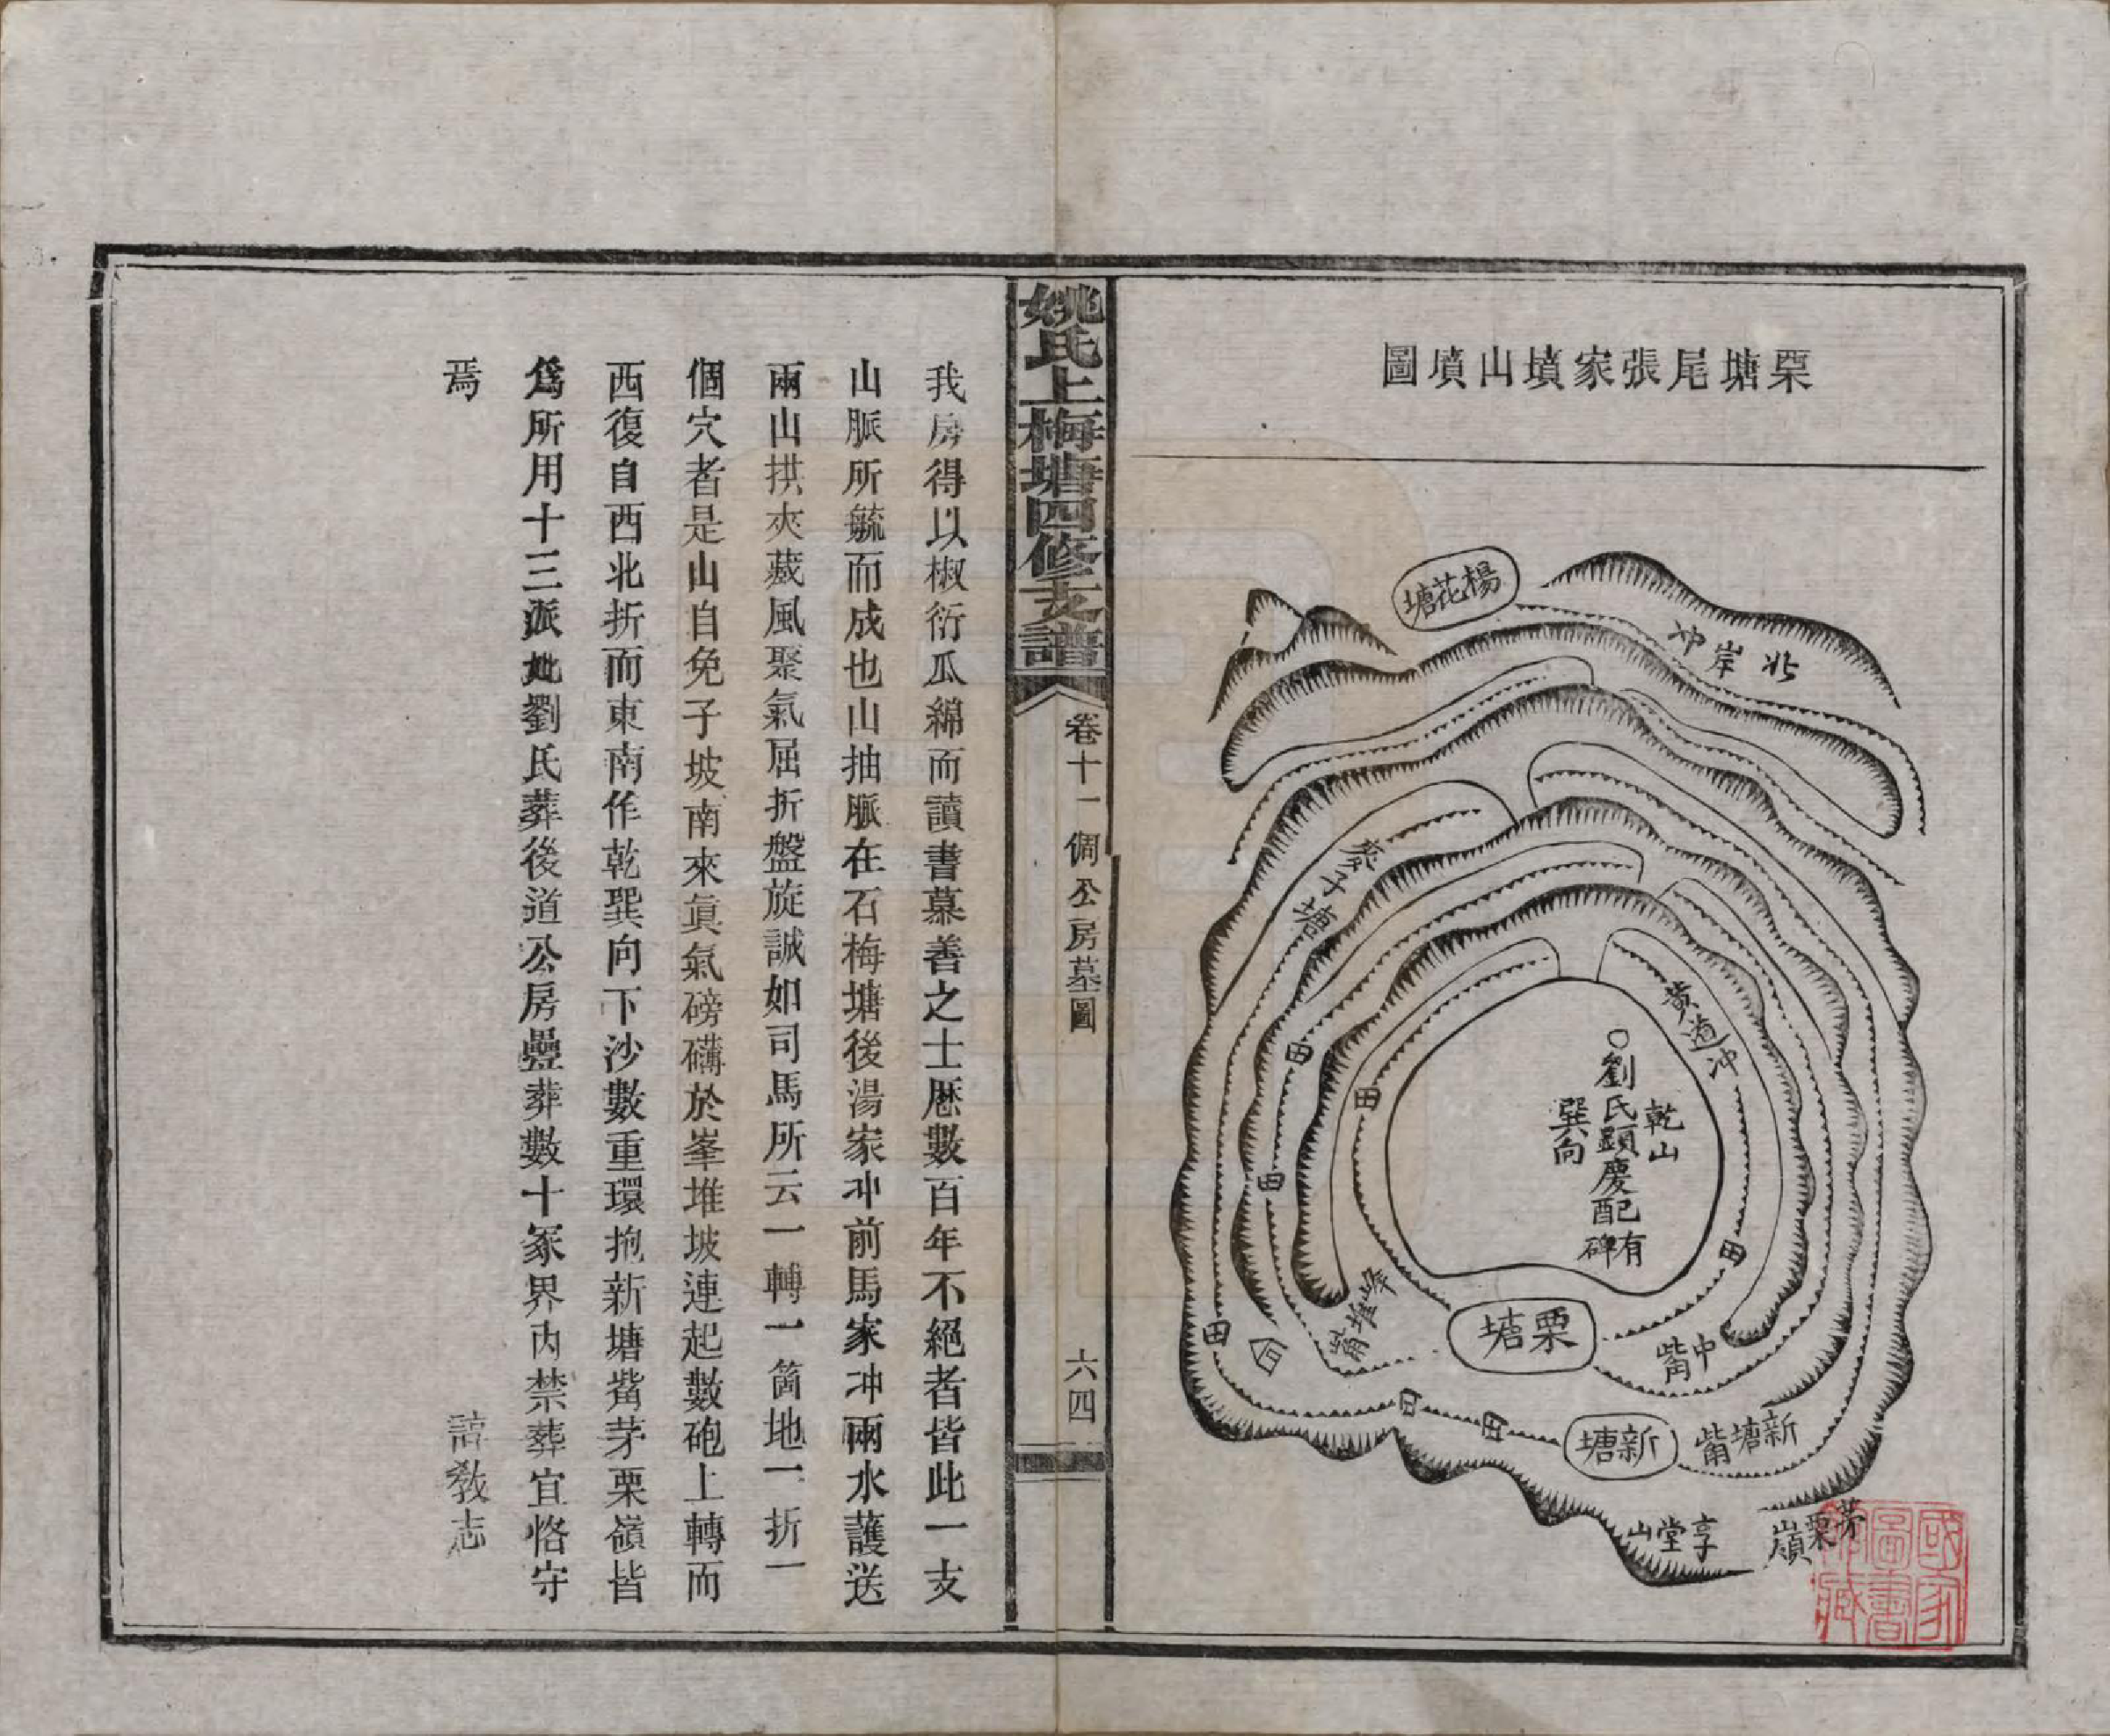 栗塘尾張家墳山墳圖
楊花塘
北岸冲
麥子塘
黃道冲
乾山
○劉氏顯慶配有碑
巽向
峯堆觜
栗塘
中觜
新塘
新塘觜
享堂山
茅栗嶺
國家圖書館藏
姚氏上梅塘四修支譜
卷十一 倜公房墓圖
六四
我房得以椒衍瓜綿而讀書慕善之士歷數百年不絕者皆此一支
山脈所毓而成也山抽脈在石梅塘後湯家冲前馬家冲兩水護送
兩山拱夾藏風聚氣屈折盤旋誠如司馬所云一轉一箇地一折一
個穴者是山自免子坡南來眞氣磅礴於峯堆坡連起數砲上轉而
西復自西北折而東南作乾巽向下沙數重環抱新塘觜茅栗嶺皆
爲所用十三派妣劉氏葬後道公房疊葬數十冢界内禁葬宜恪守
焉
敎志